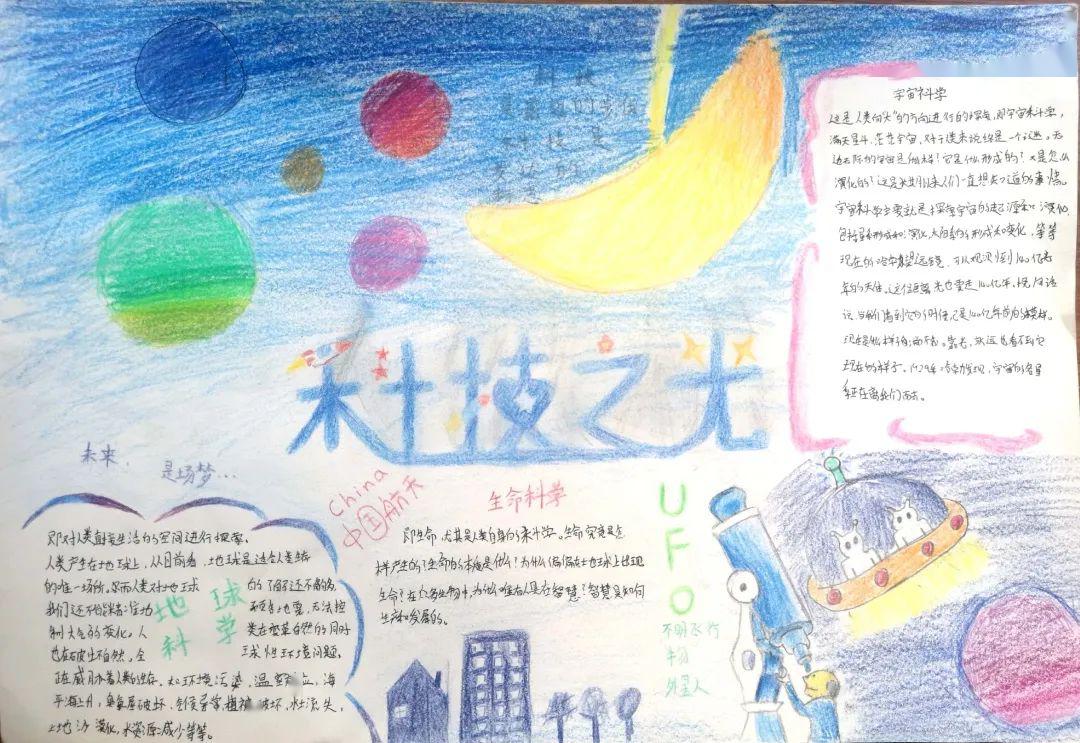 宇宙科学
这是人类向"外"的方向进行的探索,即宇宙科学,
满天星斗,茫茫宇宙,对于人类来说始终是一个谜。无
边无际的宇宙是什么样?它是什么形成的?又是怎么
演化的?这是长期以来人们一直想知道的事情。
宇宙科学主要就是探索宇宙的起源和演化,
包括星系形成和演化,太阳系的形成和变化,等等
现在的哈勃望远镜,可以观测到140亿光
年的天体。这个距离光也要走140亿年,换句话
说,当我们看到它的时候,已是140亿年前的模样。
现在是什么样子的,而不。靠光,永远也看不到它
现在的样子。1929年哈勃发现,宇宙的各星
系正在离我们而去。
科技之光
未来,
是场梦...
China
中国航天
生命科学
即生命,尤其是人类自身的科学。生命究竟是怎
样产生的?生命的本质是什么?为什么偏偏在地球上出现
生命?在众多生物中,为什么唯有人具有智慧?智慧是如何
产生和发展的。
UFO
不明飞行
物
外星人
地球
科学
即对人类自身生活的空间进行探索。
人类产生在地球上,从目前看,地球是适合人类生存
的唯一场所。然而人类对地球的了解还不够多,
我们还不能准确预告地震,无法控
制大气的变化。人类在变革自然的同时
也在破坏大自然。全球性环境问题,
正在威胁着人类的生存。如环境污染,温室效应,海
平面上升,臭氧层破坏,气候异常,植被破坏,水土流失,
土地沙漠化,水资源减少等等。